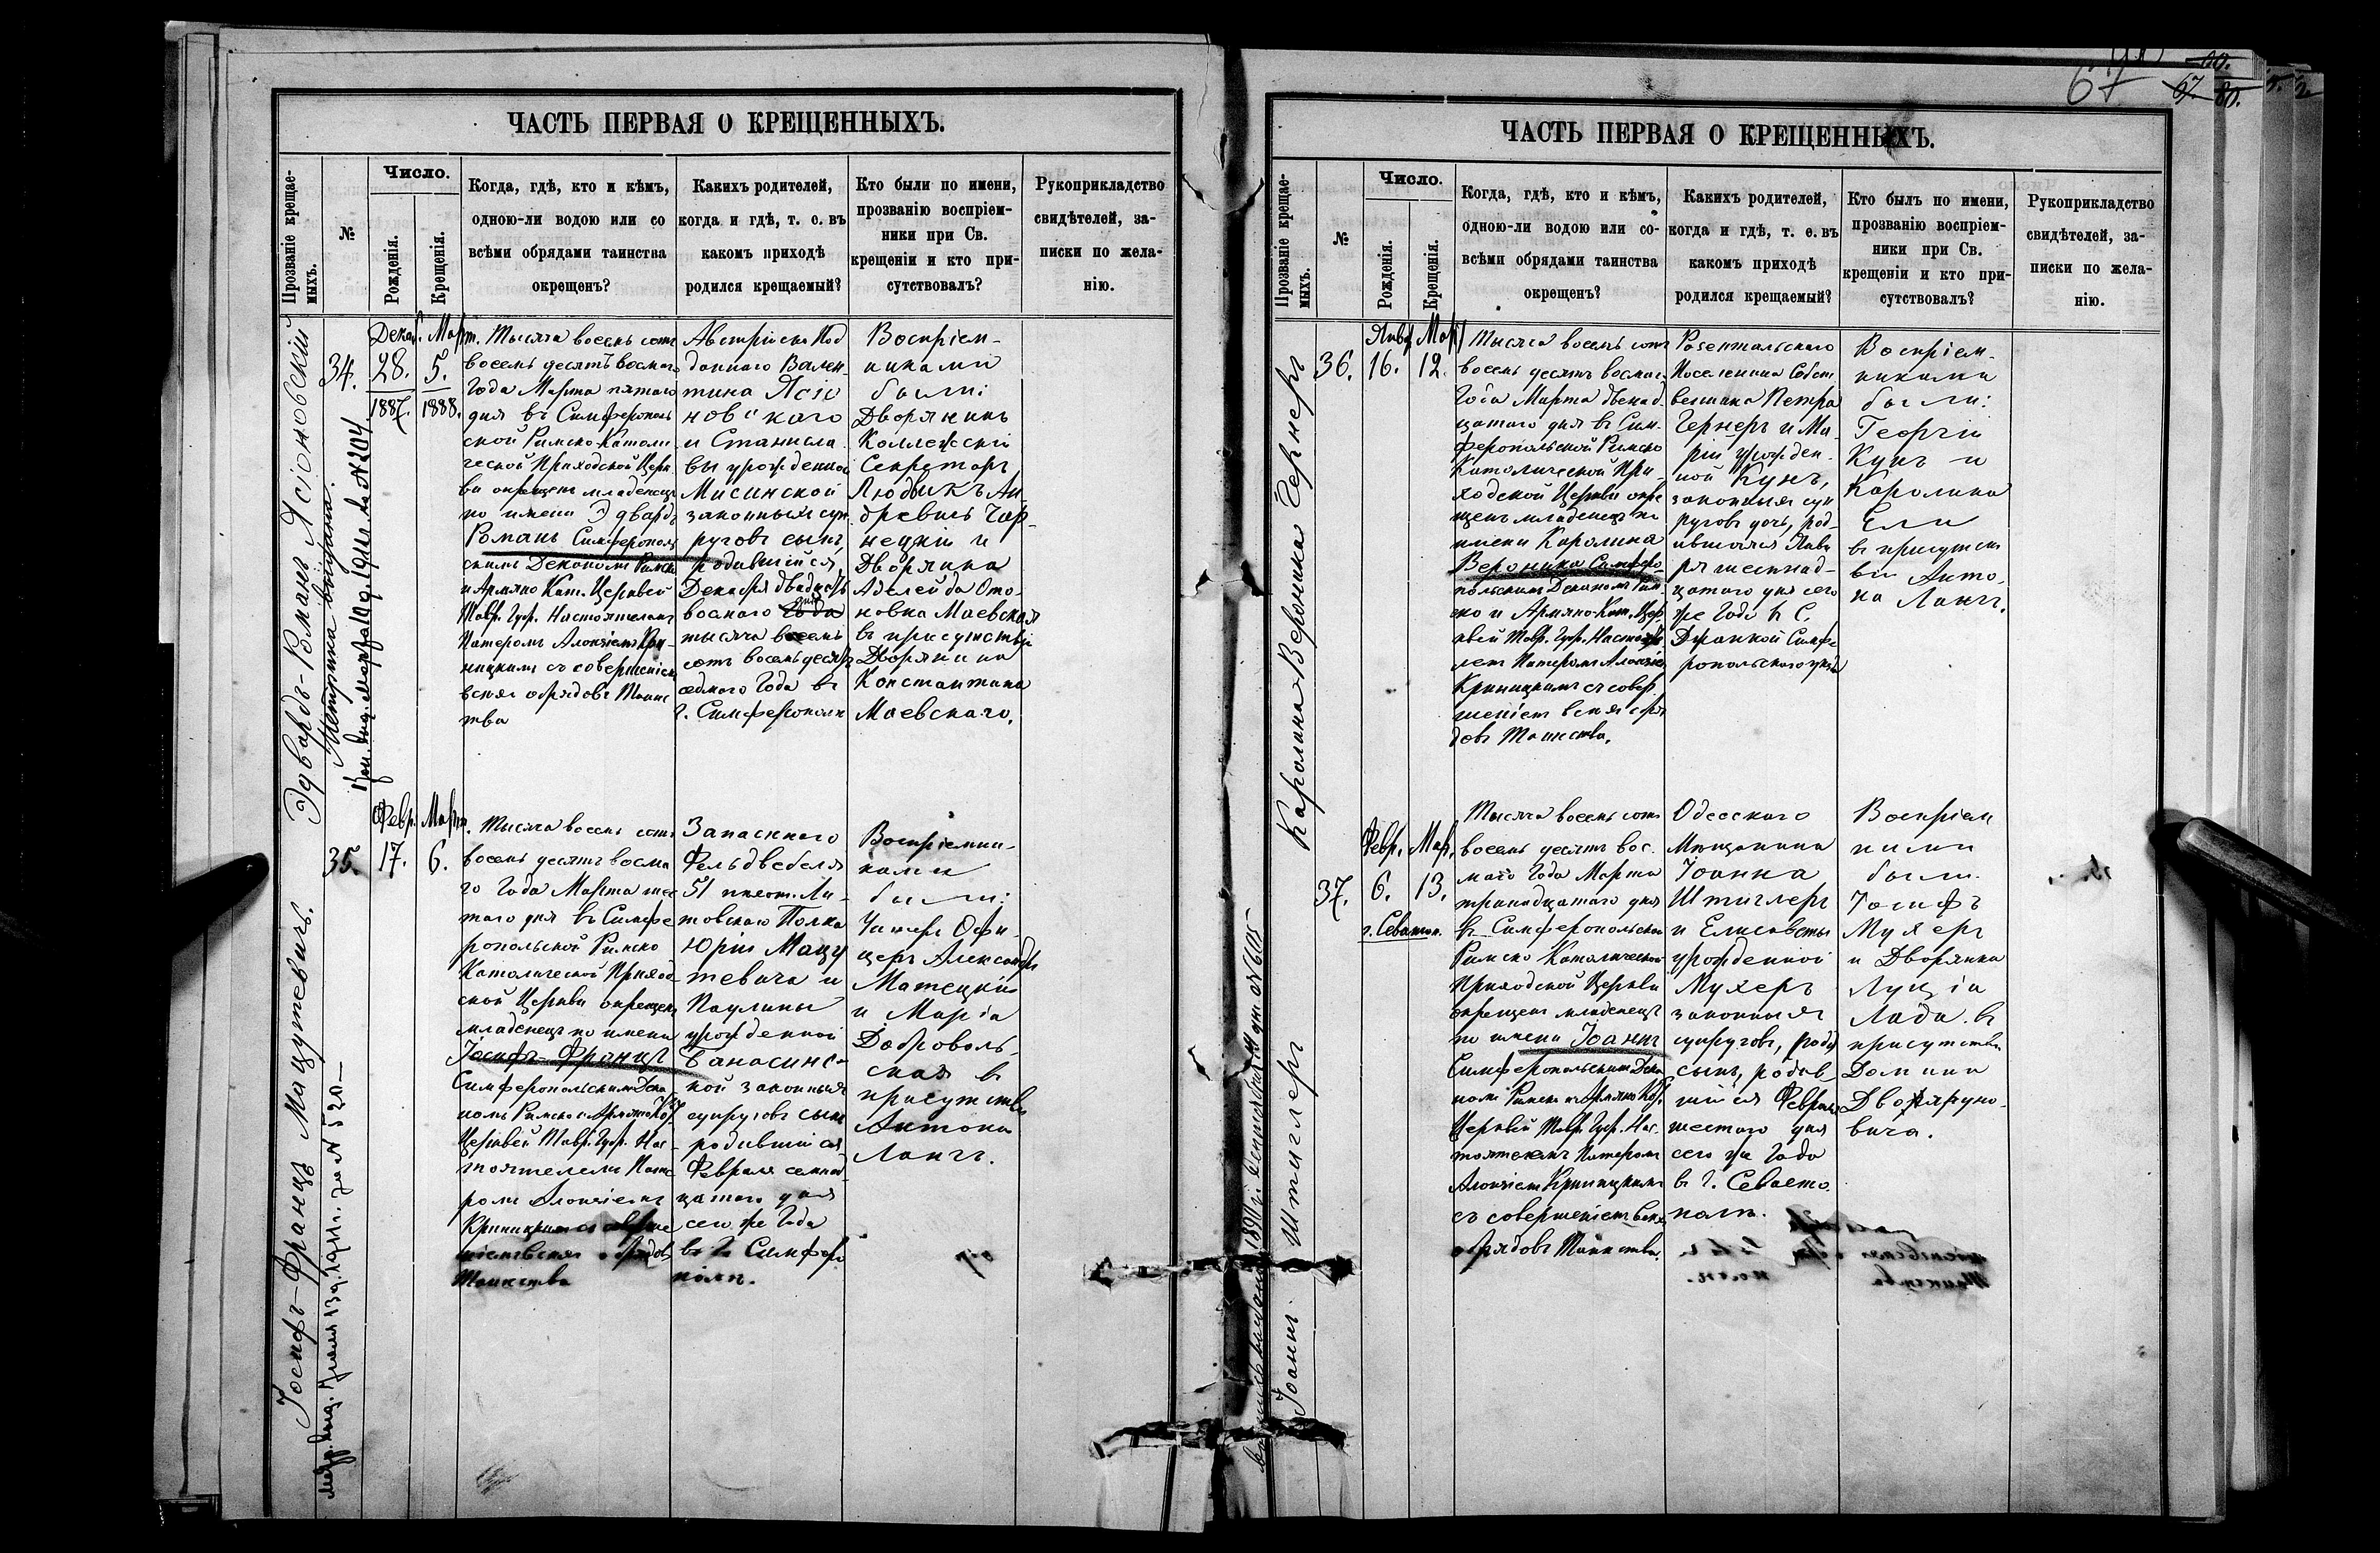 ЧАСТЬ ПЕРВАЯ О КРЕЩЕННЫХЪ.
Прозваніе крещае-
мыхъ.
№
Число.
Рожденія.
Крещенія.
Когда, гдѣ, кто и кѣмъ,
одною-ли водою или со
всѣми обрядами таинства
окрещенъ?
Какихъ родителей,
когда и гдѣ, т. е. въ
какомъ приходѣ
родился крещаемый?
Кто были по имени,
прозванію воспріем-
ники при Св.
крещеніи и кто при-
сутствовалъ?
Рукоприкладство
свидѣтелей, за-
писки по жела-
нію.
Эдвардъ-Романъ Ясіоновскій
Метрика выдана.
34.
Декаб.
28.
1887.
Март.
5.
1888.
Тысяча восемь сотъ
восемь десятъ восмаго
Года Марта пятаго
дня въ Симферополь
ской Римско-Католи
ческой Приходской Церк
ви окрещенъ младенецъ
по имени Эдвардъ
Романъ Симферополь
скимъ Деканомъ Римско
и Армяно Кат. Церквей
Тавр. Губ. Настоятелемъ
Патеромъ Алоизіемъ Кри-
ницкимъ съ совершеніемъ
всехъ обрядовъ Таинс
тва
Австрійско Под
даннаго Вален
тина Ясіо
новскаго
и Станисла
вы урожденной
Мисинской
законныхъ суп
руговъ сынъ,
родившійся
Декабря двадцать
восмаго дня
тысяча восемь
сотъ восемьдесятъ
седмаго Года въ
г. Симферополѣ
Воспріем-
никами
были:
Дворянинъ
Коллежскій
Секретарь
Людвикъ Ан-
древисъ Чар-
нецкій и
Дворянка
Аделейда Ото-
новна Маевская
въ присутствіи
Дворянина
Константина
Маевскаго.
Іосифъ-Францъ Мацутевичъ.
Метр. выд. 1911 г. за № 520
35.
Февр.
17.
Март.
6.
Тысяча восемь сотъ
восемь десятъ восма
го Года Марта шес
таго дня въ Симфе
ропольской Римско
Католической Приход
ской Церкви окрещенъ
младенецъ по имени
Іосифъ-Францъ
Симферопольскимъ Дека
номъ Римско и Армяно Кат.
Церквей Тавр. Губ. Нас-
тоятелемъ Пате
ромъ Алоизіемъ
Криницкимъ съ соверше
ніемъ всехъ обрядовъ
Таинства
Запаснаго
Фельдвебеля
51 пехот. Ли-
товскаго Полка
Юрія Мацу
тевича и
Паулины
урожденной
Банасинс-
кой законныхъ
супруговъ сынъ
родившійся
Февраля семнад
цатаго дня
сего же Года
въ г. Симферо
полѣ.
Воспріемни-
ками
были:
Унтеръ Офи-
церъ Александръ
Матецкій
и Марія
Доброволь-
ская въ
присутствіи
Антона
Лангъ.
67
80.
ЧАСТЬ ПЕРВАЯ О КРЕЩЕННЫХЪ.
Прозваніе крещае-
мыхъ.
№
Число.
Рожденія.
Крещенія.
Когда, гдѣ, кто и кѣмъ,
одною-ли водою или со-
всѣми обрядами таинства
окрещенъ?
Какихъ родителей,
когда и гдѣ, т. е. въ
какомъ приходѣ
родился крещаемый?
Кто былъ по имени,
прозванію воспріем-
ники при Св.
крещеніи и кто при-
сутствовалъ?
Рукоприкладство
свидѣтелей, за-
писки по жела-
нію.
Каролина-Вероника Гернеръ
36.
Янвр.
16.
Мар.
12.
Тысяча восемь сотъ
восемь десятъ восмаго
Года Марта двенад-
цатаго дня въ Сим-
феропольской Римско
Католической При-
ходской Церкви окре
щенъ младенецъ по
имени Каролина
Вероника Симферо-
польскимъ Деканомъ Рим-
ско и Армяно-Кат. Цер-
квей Тавр. Губ. Настояте
лемъ Патеромъ Алоизіемъ
Криницкимъ съ совер
шеніемъ всехъ обря
довъ Таинства.
Розентальскаго
Поселянина Собст
венника Петра
Гернеръ и Ма-
ріи урожден-
ной Кунъ,
законныхъ суп
руговъ дочь, род-
ившаяся Янва
ря шестнад-
цатаго дня сего
же Года въ С.
Джанкой Симфе
ропольскаго уѣзда
Воспріем-
никами
были:
Георгій
Кунъ и
Каролина
Ели
въ присутст
віи Анто-
на Лангъ.
Іоаннъ Штиглеръ
37.
Февр.
6.
г. Севастоп.
Мар.
13.
Тысяча восемь сотъ
восемь десятъ вос.
маго Года Марта
тринадцатаго дня
въ Симферопольской
Римско Католической
Приходской Церкви
окрещенъ младенецъ
по имени Іоаннъ
Симферопольскимъ Дека
номъ Римско и Армяно Кат.
Церквей Тавр. Губ. Нас-
тоятелемъ Патеромъ
Алоизіемъ Криницкимъ
съ совершеніемъ всехъ
обрядовъ Таинства.
Одесскаго
Мещанина
Іоанна
Штиглеръ
и Елисаветы
урожденной
Мухеръ
законныхъ
супруговъ,
сынъ, родив-
шійся Февраля
шестаго дня
сего же Года
въ г. Севасто-
полѣ.
Воспріем
никами
были.
Іосифъ
Мухеръ
и Дворянка
Луція
Лада въ
присутствіи